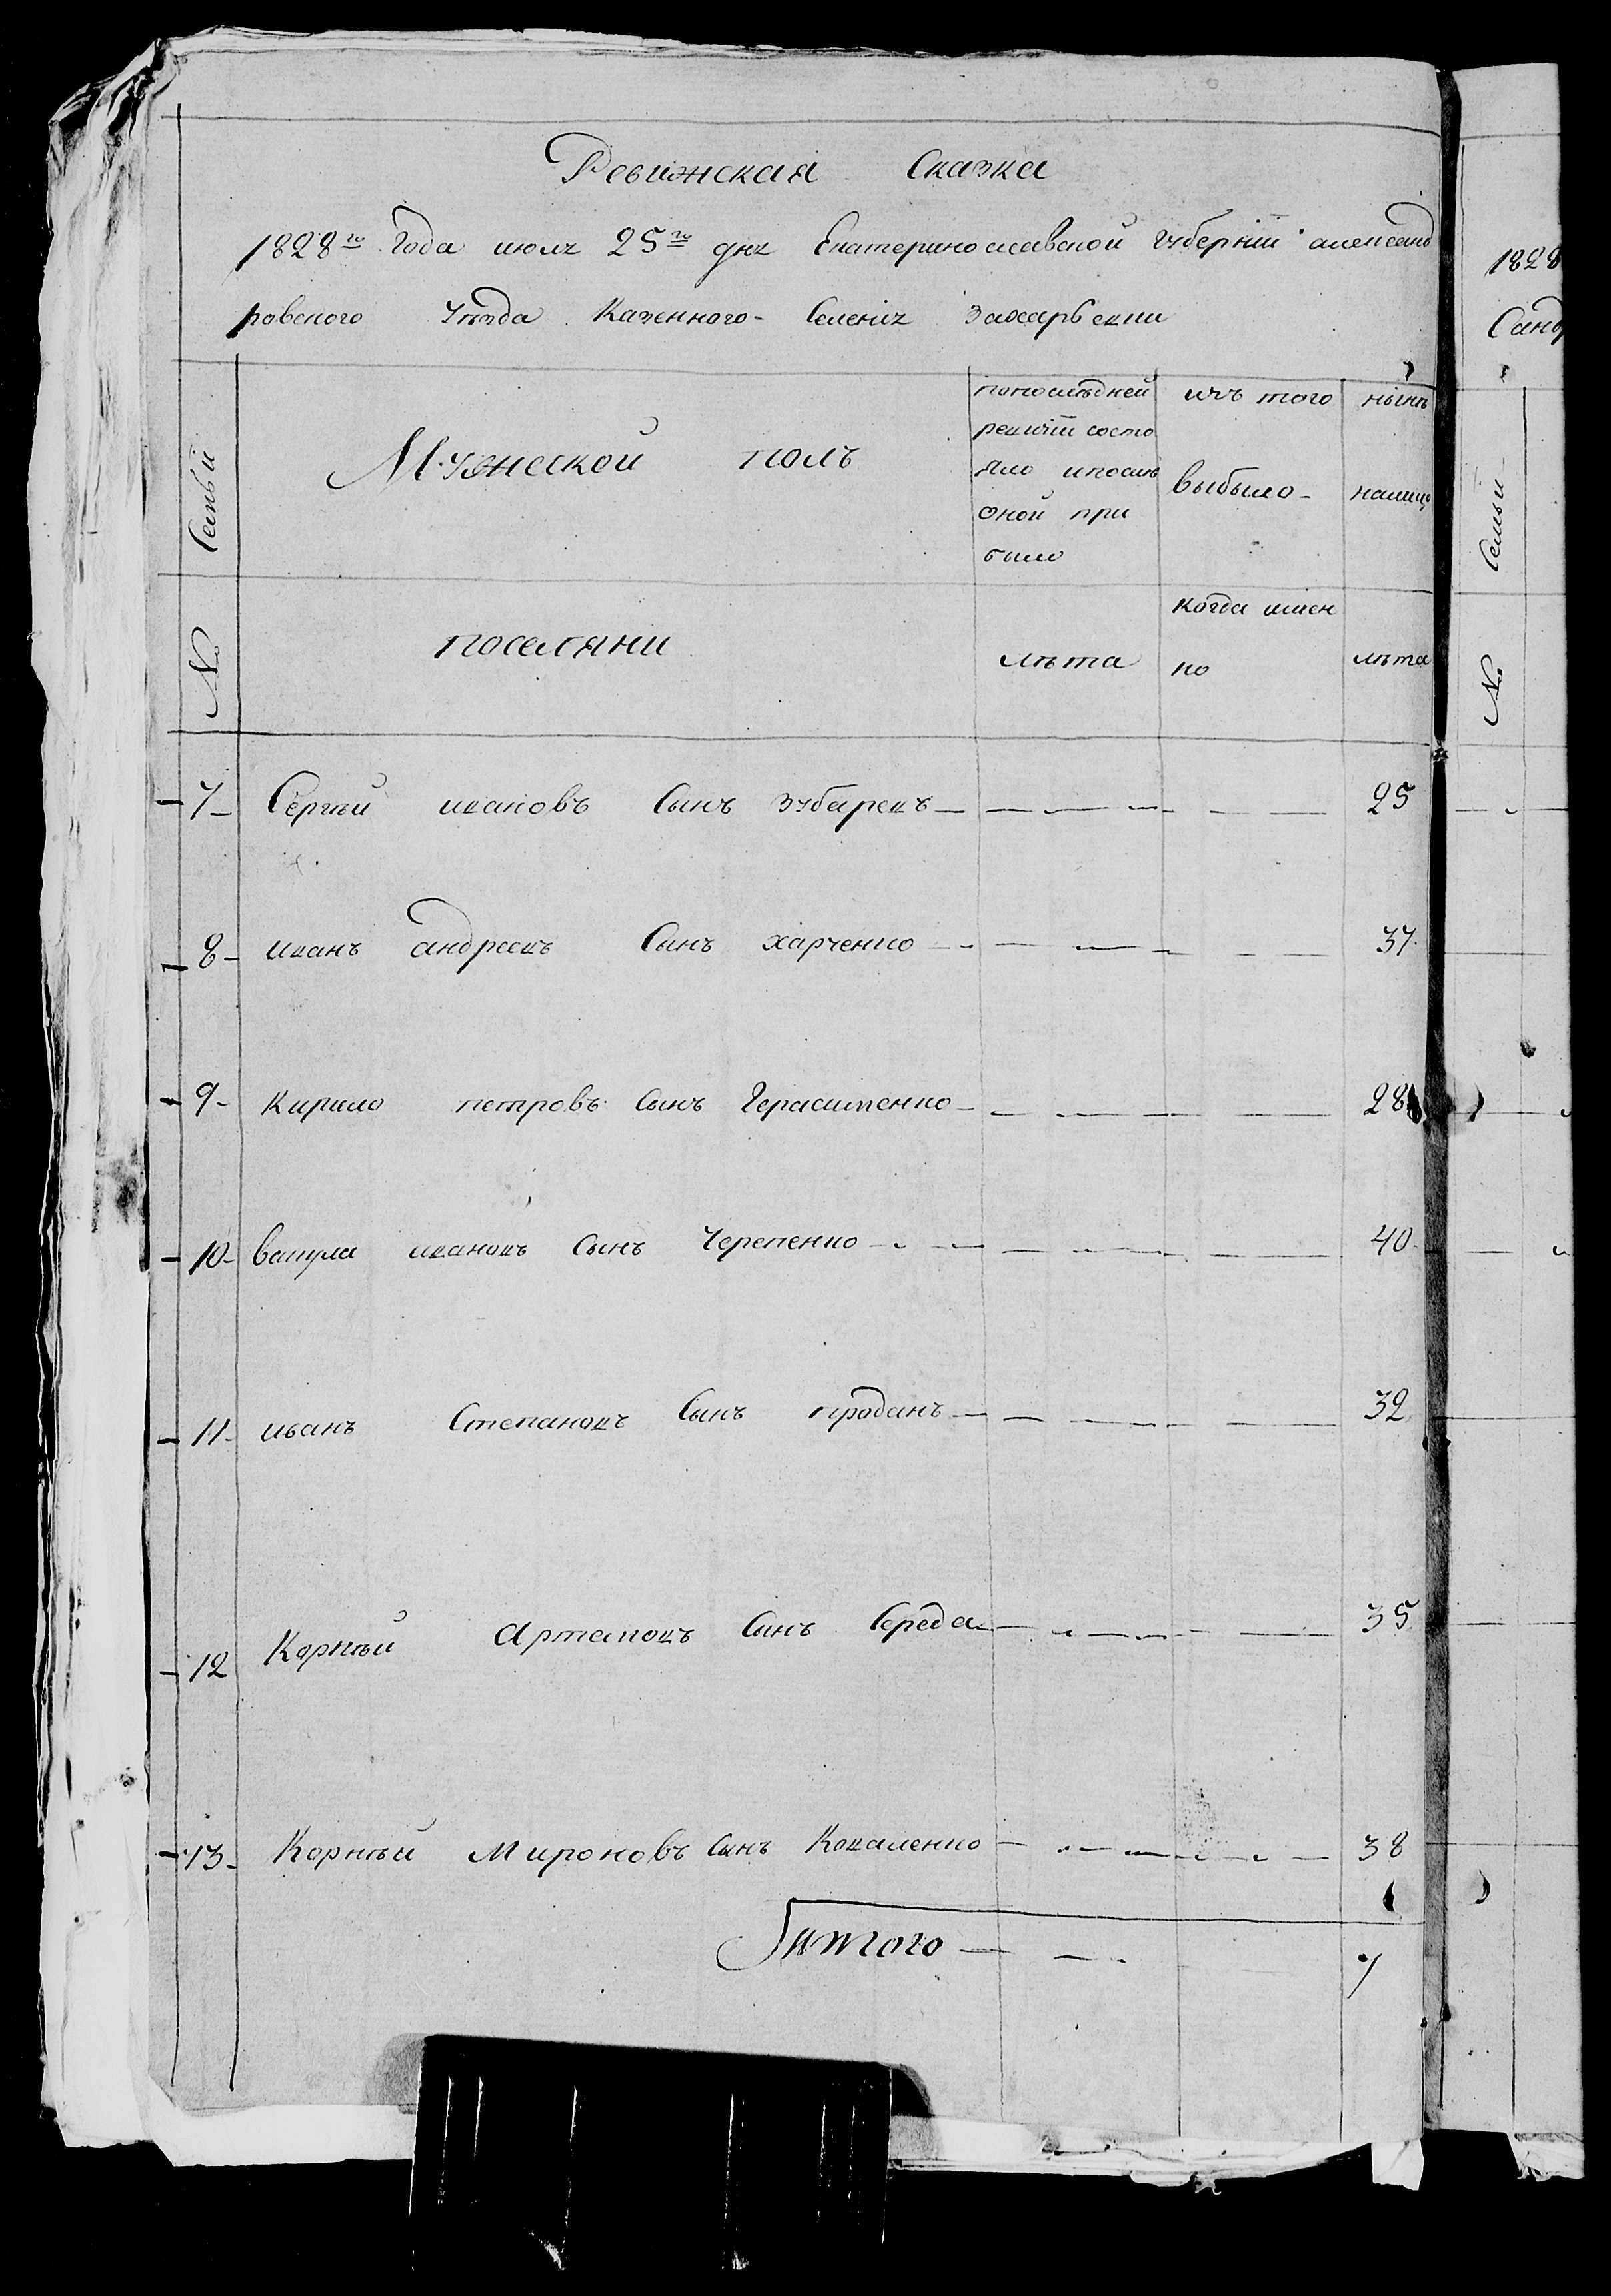 Ревижская Сказка
1828го года июля 25го дня Екатеринославской губернии александ
ровского Уѣзда Казенного Селения Захарьевки
№ Семьи
Мужеской полъ
попослѣдней
ревизіи состо
яло ипослѣ
оной при
было
изъ того
выбыло
нынѣ
налицо
поселяни
лѣта
когда имен
но
лѣта
7 Сергѣй ивановъ Сынъ зубаревъ 25
8 иванъ андреевъ Сынъ харченко 37
9 кирило петровъ Сынъ Герасименко 28
10 вакула ивановъ Сынъ Черепенко 40
11 иванъ Степановъ Сынъ проданъ 32
12 Корнѣй Артемовъ Сынъ Середа 35
13 Корнѣй Мироновъ Сынъ Коваленко 38
итого 7
1828
Санд
№ Семьи